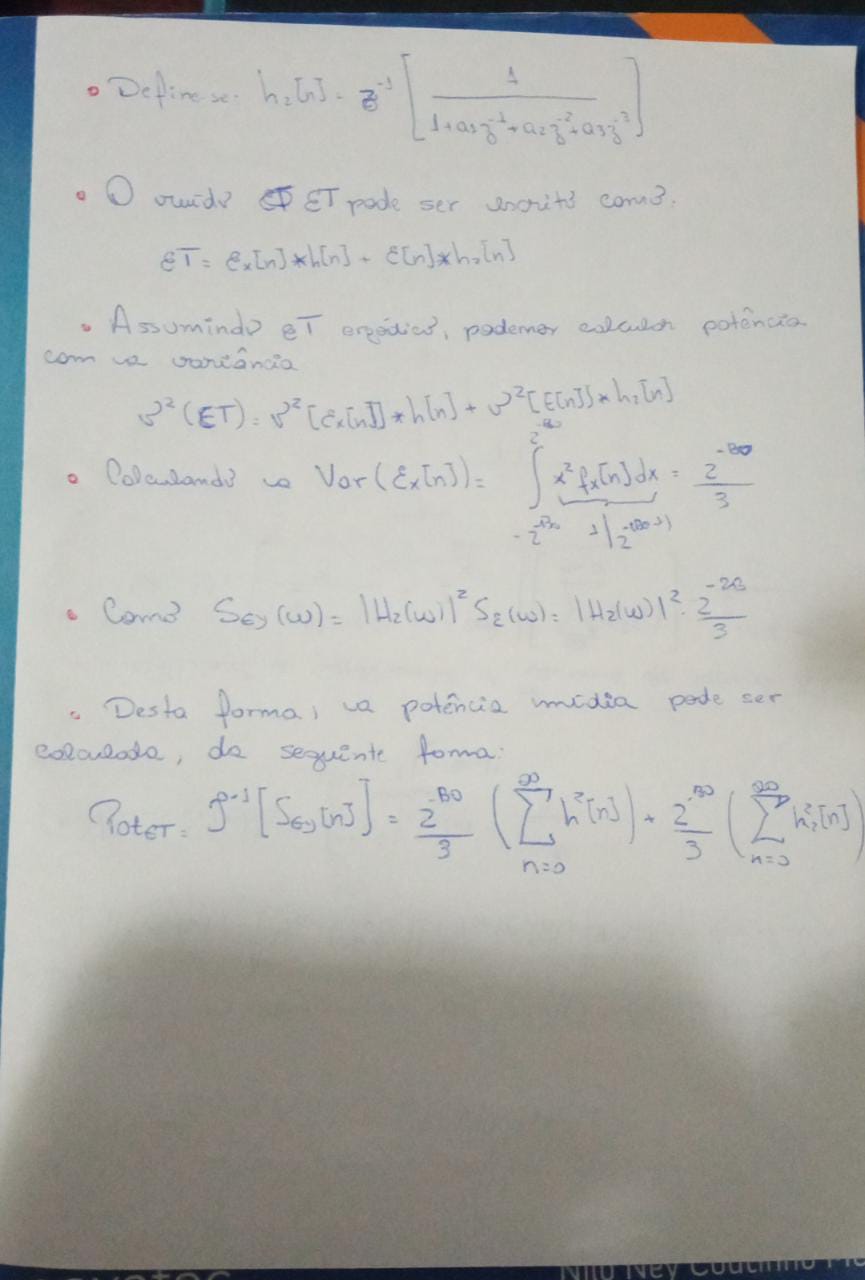 • Define-se: h₂[n] = z⁻¹ [ 1 / (1+a₁z⁻¹+a₂z⁻²+a₃z⁻³) ]
• O ruído ET pode ser escrito como:
ET = Ɛx[n]*h[n] + Ɛ[n]*h₂[n]
• Assumindo ET ergódico, podemos calcular potência
com a variância
σ²(ET) = σ²[Ɛx[n]]*h[n] + σ²[E[n]]*h₂[n]
• Calculando a Var(Ɛx[n]) = ∫_{-2^{-B0}}^{2^{-B0}} x² fx[n] dx = 2^{-B0} / 3
• Como S_{Ey}(ω) = |H₂(ω)|² S_Ɛ(ω) = |H₂(ω)|² · 2^{-2B} / 3
• Desta forma, a potência média pode ser
calculada, da seguinte forma:
Pot_{ET} = F⁻¹[S_{Ey}[n]] = 2^{-B0}/3 ( ∑_{n=0}^{∞} h²[n] ) + 2^{-B0}/3 ( ∑_{n=0}^{∞} h₂²[n] )
Nilo Ney Coutinho